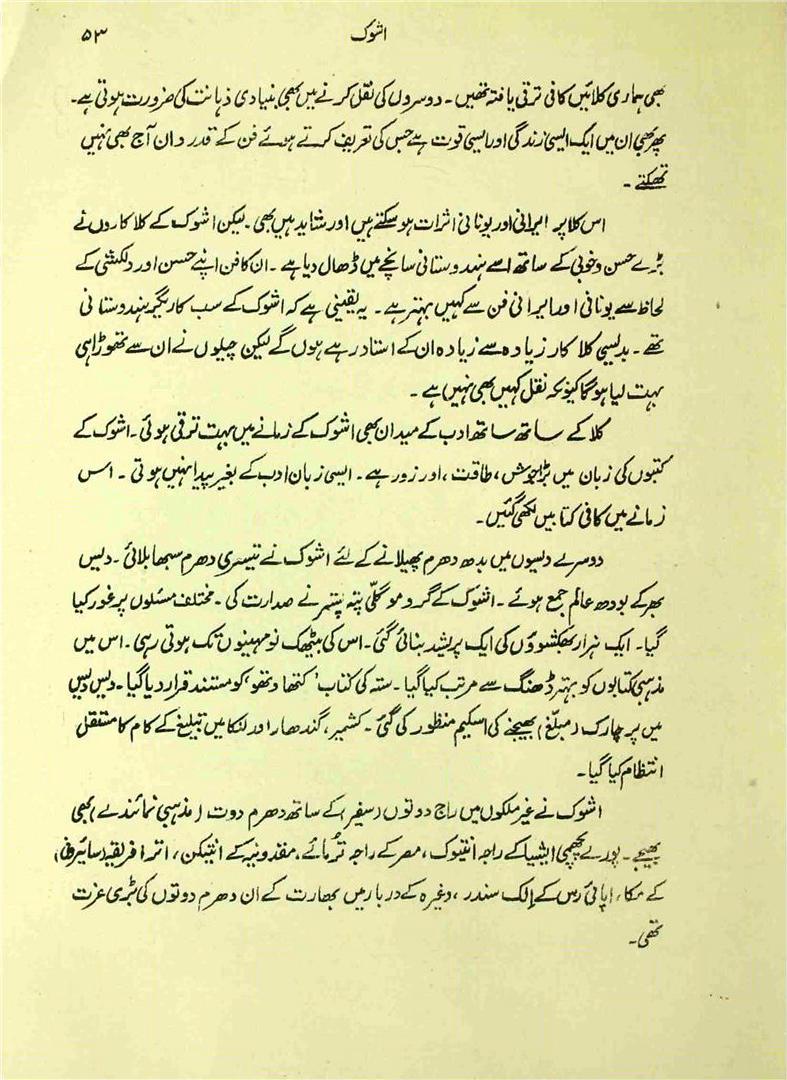 ۵۳
اشوک
بھی ہماری کلائیں کافی ترقی یافتہ تھیں۔ دوسروں کی نقل کرنے میں بھی بنیادی ذہانت کی ضرورت ہوتی ہے۔
پھر بھی ان میں ایک ایسی زندگی اور ایسی قوت ہے جس کی تعریف کرتے ہوئے فن کے قدردان آج بھی نہیں
تھکتے۔
اس کلا پر ایرانی اور یونانی اثرات ہو سکتے ہیں اور شاید ہیں بھی۔ لیکن اشوک کے کلا کاروں نے
بڑے حسن و خوبی کے ساتھ اسے ہندوستانی سانچے میں ڈھال دیا ہے۔ ان کا فن اپنے حسن اور دلکشی کے
لحاظ سے یونانی اور ایرانی فن سے کہیں بہتر ہے۔ یہ یقینی ہے کہ اشوک کے سب کاریگر ہندوستانی
تھے۔ بدلیسی کلا کار زیادہ سے زیادہ ان کے استاد رہے ہوں گے لیکن چیلوں نے ان سے تھوڑا ہی
بہت لیا ہوگا کیونکہ نقل کہیں بھی نہیں ہے۔
کلا کے ساتھ ساتھ ادب کے میدان بھی اشوک کے زمانے میں بہت ترقی ہوئی۔ اشوک کے
کتبوں کی زبان میں بڑا جوش، طاقت، اور زور ہے۔ ایسی زبان ادب کے بغیر پیدا نہیں ہوتی۔ اس
زمانے میں کافی کتابیں لکھی گئیں۔
دوسرے دلیسوں میں بدھ دھرم پھیلانے کے لئے اشوک نے تیسری دھرم سبھا بلائی۔ دلیس
بھر کے بودھ عالم جمع ہوئے۔ اشوک کے گرو موگلّی پتہ تپتہر نے صدارت کی۔ مختلف مسئلوں پر غور کیا
گیا۔ ایک ہزار بھکشوؤں کی ایک پریشد بنائی گئی۔ اس کی بیٹھک نو مہینوں تک ہوتی رہی۔ اس میں
مذہبی کتابوں کو بہتر ڈھنگ سے مرتب کیا گیا۔ ستہ کی کتاب ’کتھا وتھو‘ کو مستند قرار دیا گیا۔ دلیس دلیس
میں پرچارک (مبلّغ) بھیجنے کی اسکیم منظور کی گئی۔ کشمیر، گندھار اور لنکا میں تبلیغ کے کام کا مستقل
انتظام کیا گیا۔
اشوک نے غیر ملکوں میں راج دوتوں (سفیر) کے ساتھ دھرم دوت (مذہبی نمائندے) بھی
بھیجے۔ پورے پچھمی ایشیا کے راجہ انتیوک، مصر کے راجہ تُرمائے، مقدونیہ کے انتیکن، اتر افریقہ (سائرینی)
کے مکا، اپائی رس کے الک سندر، وغیرہ کے دربار میں بھارت کے ان دھرم دوتوں کی بڑی عزت
تھی۔